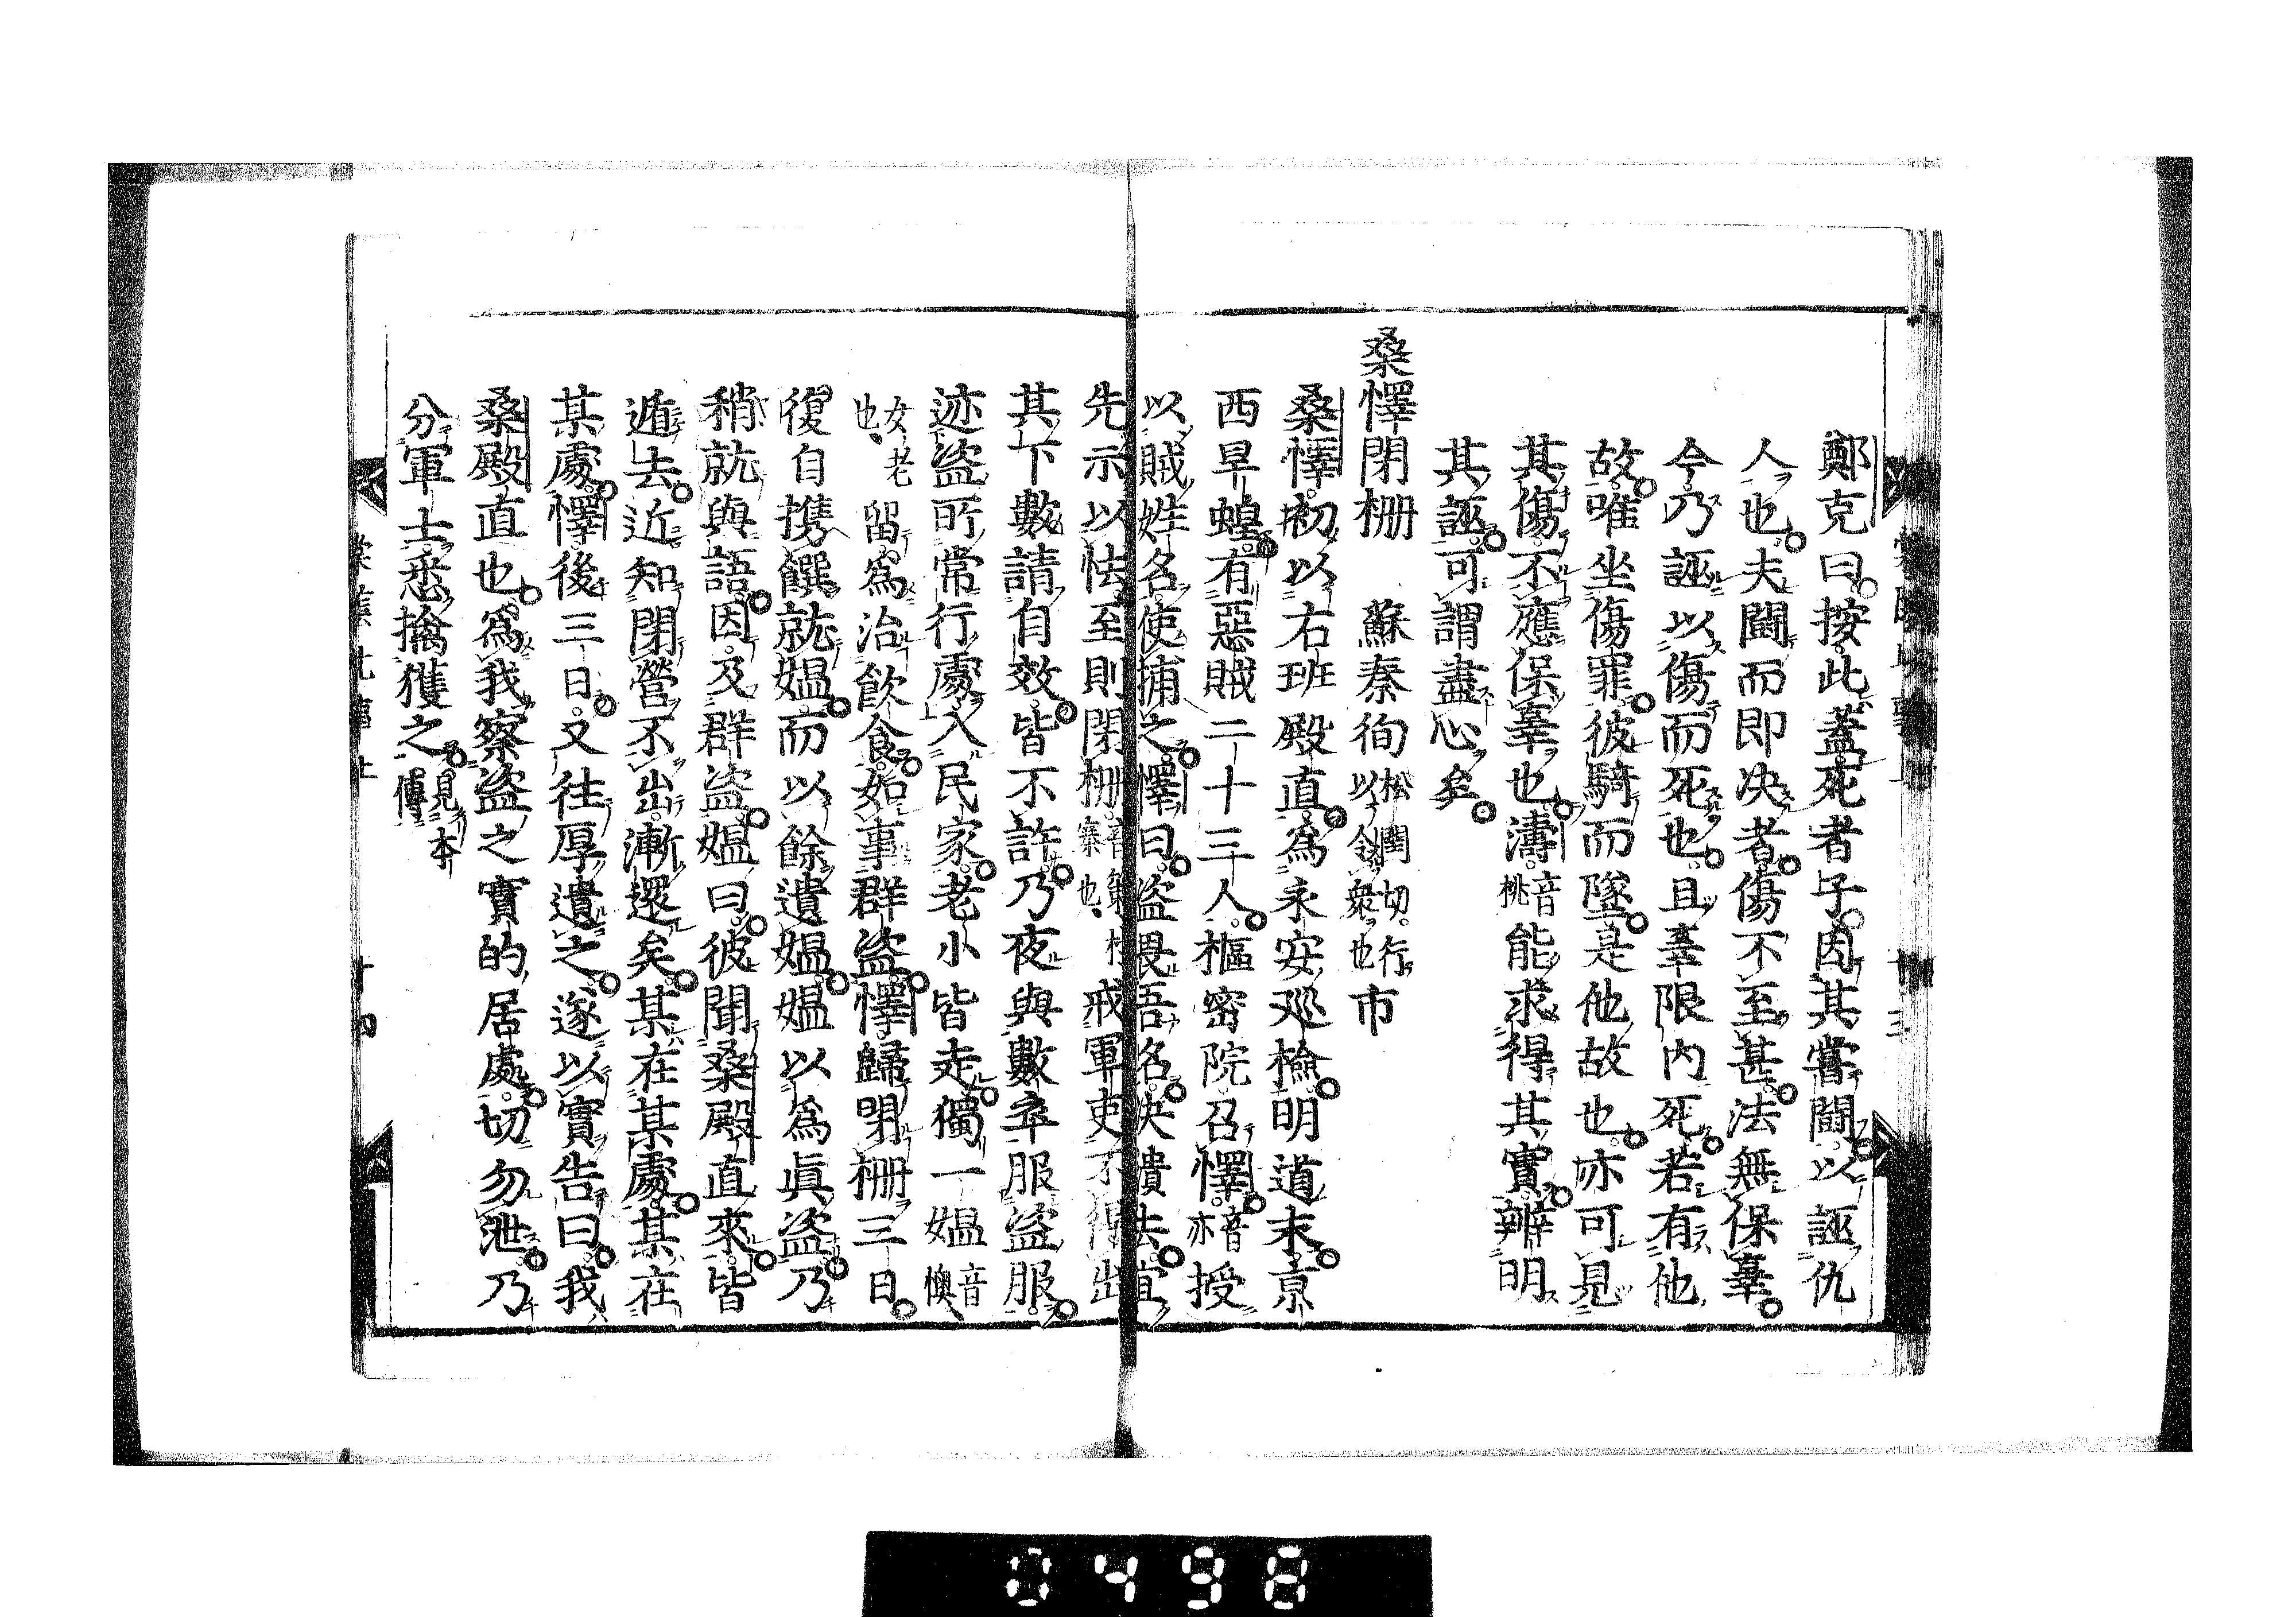 鄭克曰按此蓋死者子因其嘗鬪以誣仇
人也夫鬪而即决者傷不至甚法無保辜
今乃誣以傷而死也且辜限内死若有他
故唯坐傷罪彼騎而墜是他故也亦可見
其傷不應保辜也濤音桃能求得其實辨明
其誣可謂盡心矣
桑懌閉柵　蘇秦徇松閏切行以令衆也市
桑懌初以右班殿直爲永安廵檢明道末京
西旱蝗有惡賊二十三人樞密院召懌音亦授
以賊姓名使捕之懌曰盗畏吾名决潰去宜
先示以怯至則閉柵寨也戒軍吏不得出
其下數請自效皆不許乃夜與數卒服盗服
迹盗所常行處入民家老小皆走獨一媼音懊
女老也留爲治飲食如事群盗懌歸閉柵三日
復自携饌就媼而以餘遺媼媼以爲眞盗乃
稍就與語因及群盗媼曰彼聞桑殿直來皆
遁去近知閉營不出漸還矣某在某處某在
某處懌後三日又往厚遺之遂以實告曰我
桑殿直也爲我察盗之實的居處切勿泄乃
分軍士悉擒獲之見本傳
0498